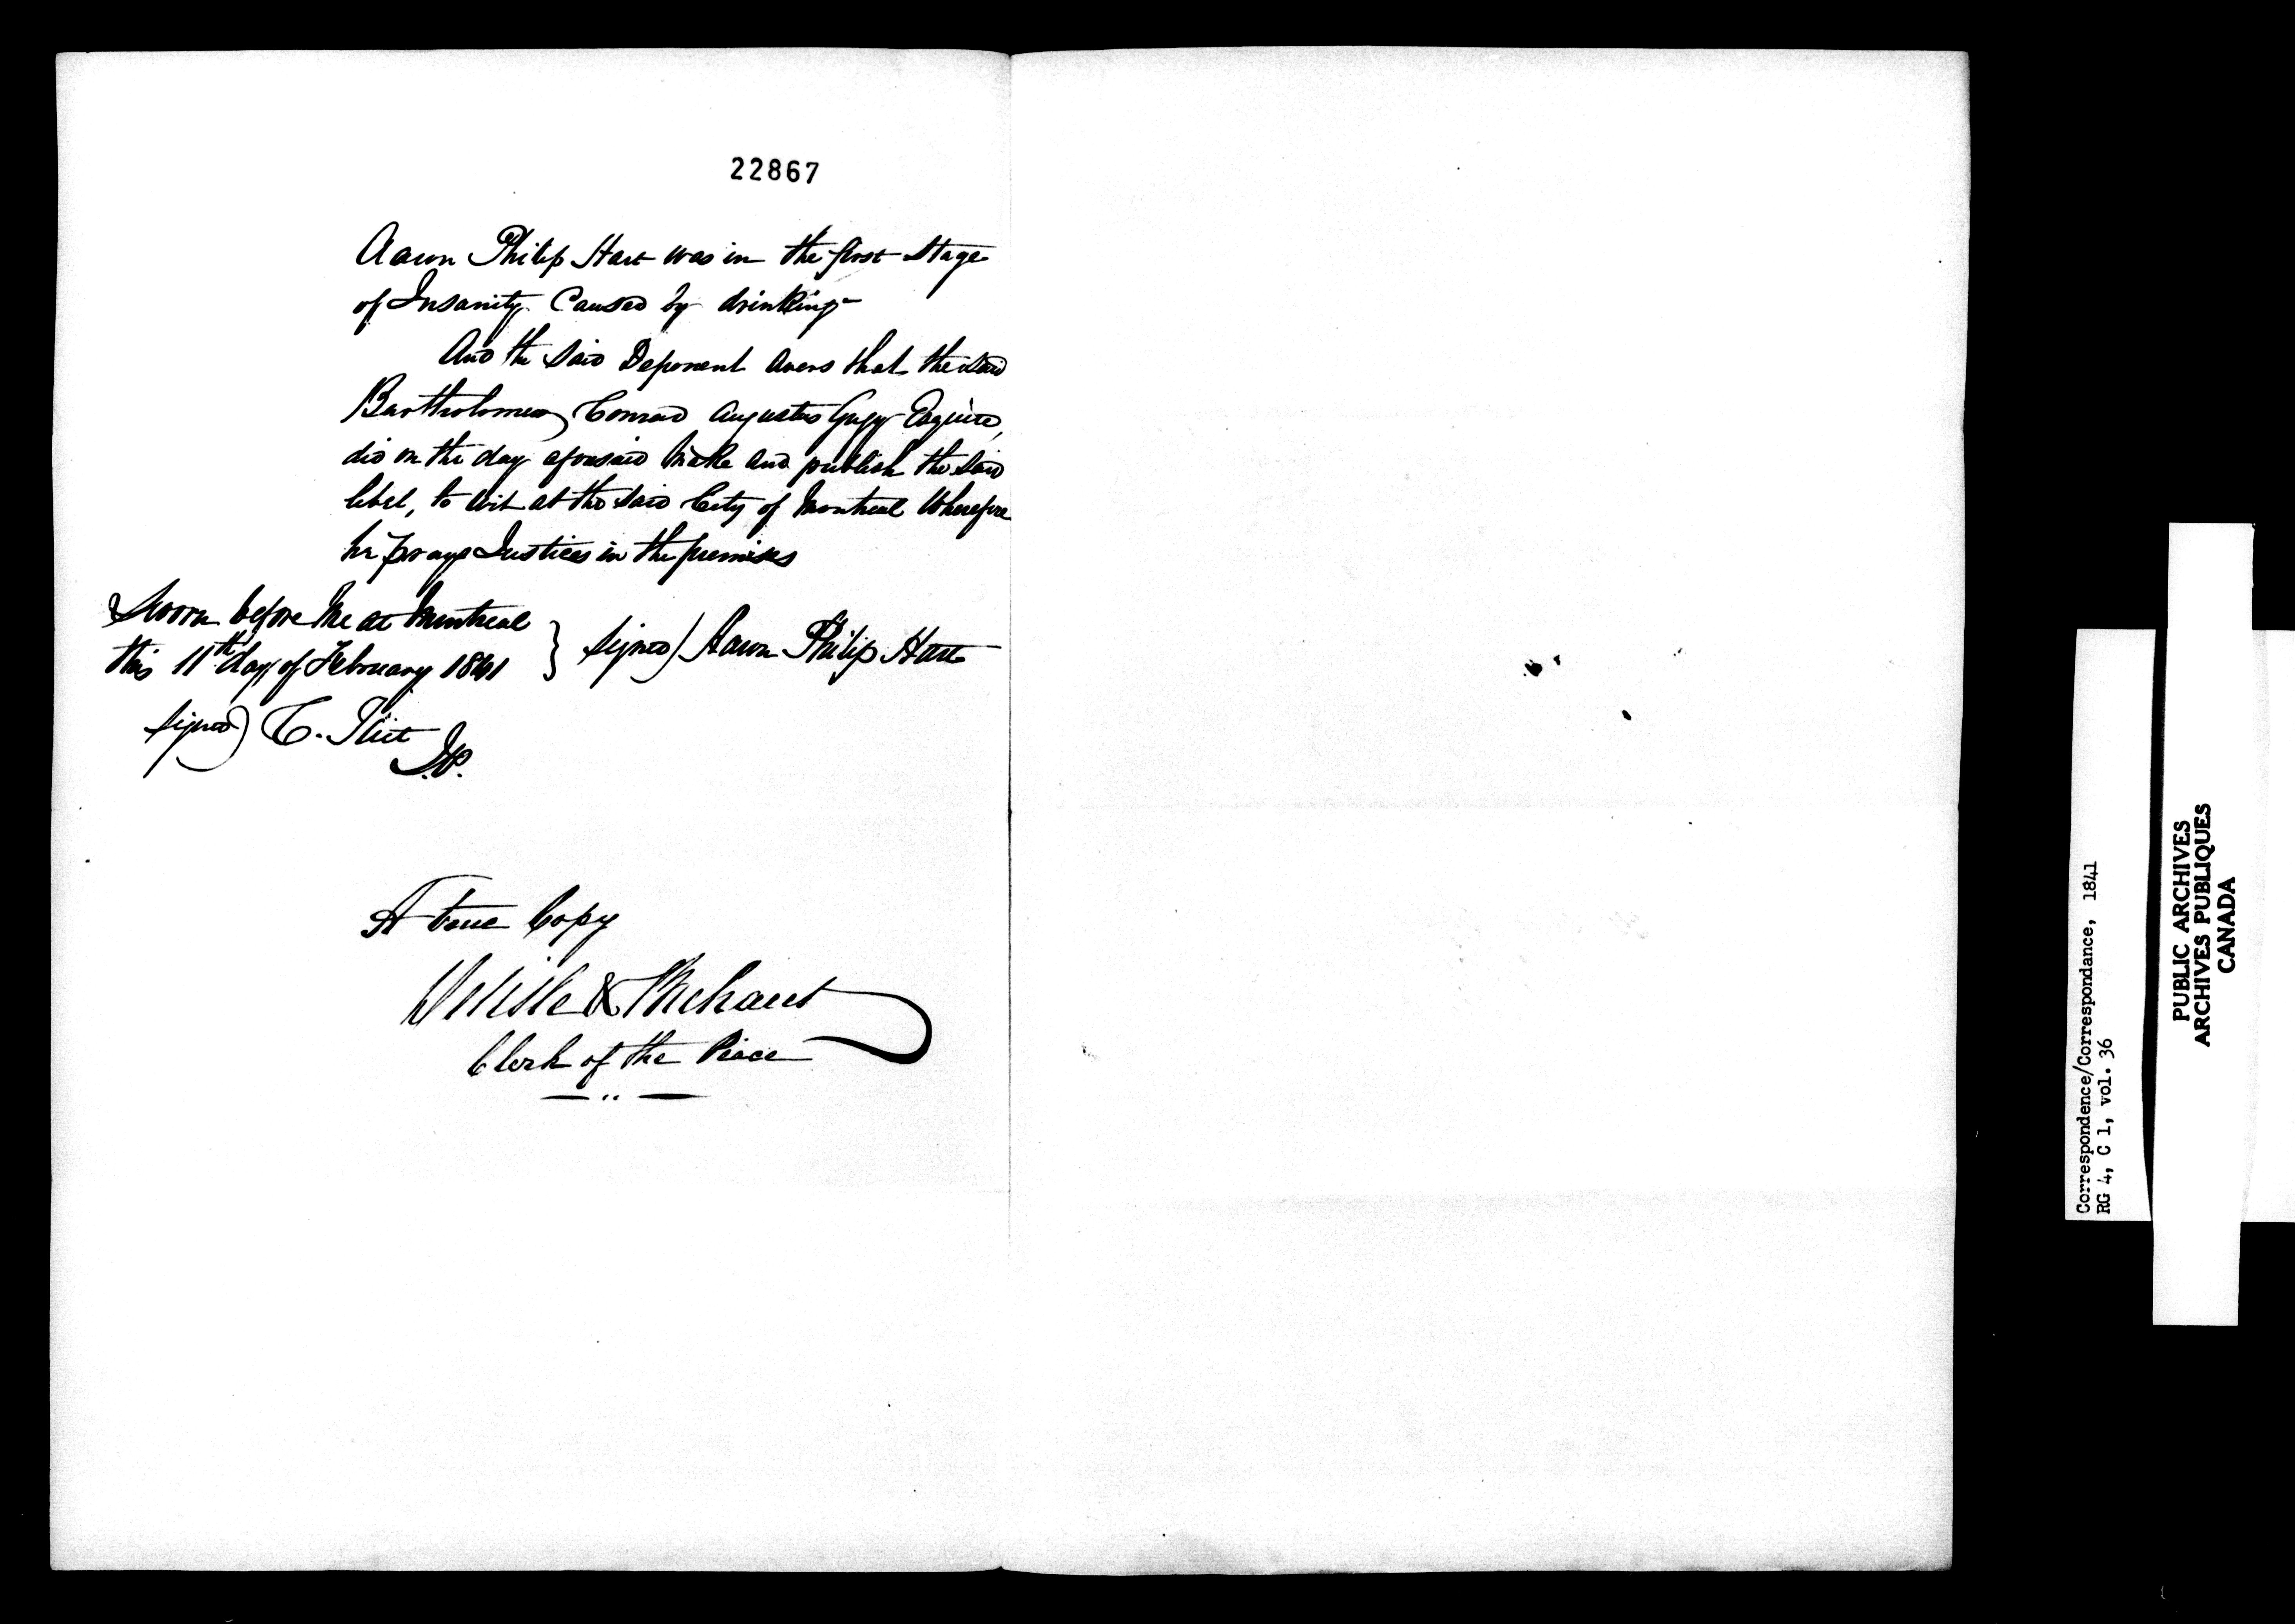 22867
Aaron Philip Hart was in the first Stage
of Insanity Caused by drinking
And the Said Deponent avers that the Said
Bartholomew Conrad Augustus Gugy Esquire,
did on the day aforesaid make and publish the Said
libel, to wit at the Said City of Montreal Wherefore
he prays Justice in the premises
Sworn before me at Montreal
this 11th day of February 1841
} signed) Aaron Philip Hart
signed)
J.P.
A true Copy
Delisle & Brehaut
Clerk of the Peace
Correspondence/Correspondance, 1841
RG 4, C 1, vol. 36
PUBLIC ARCHIVES
ARCHIVES PUBLIQUES
CANADA